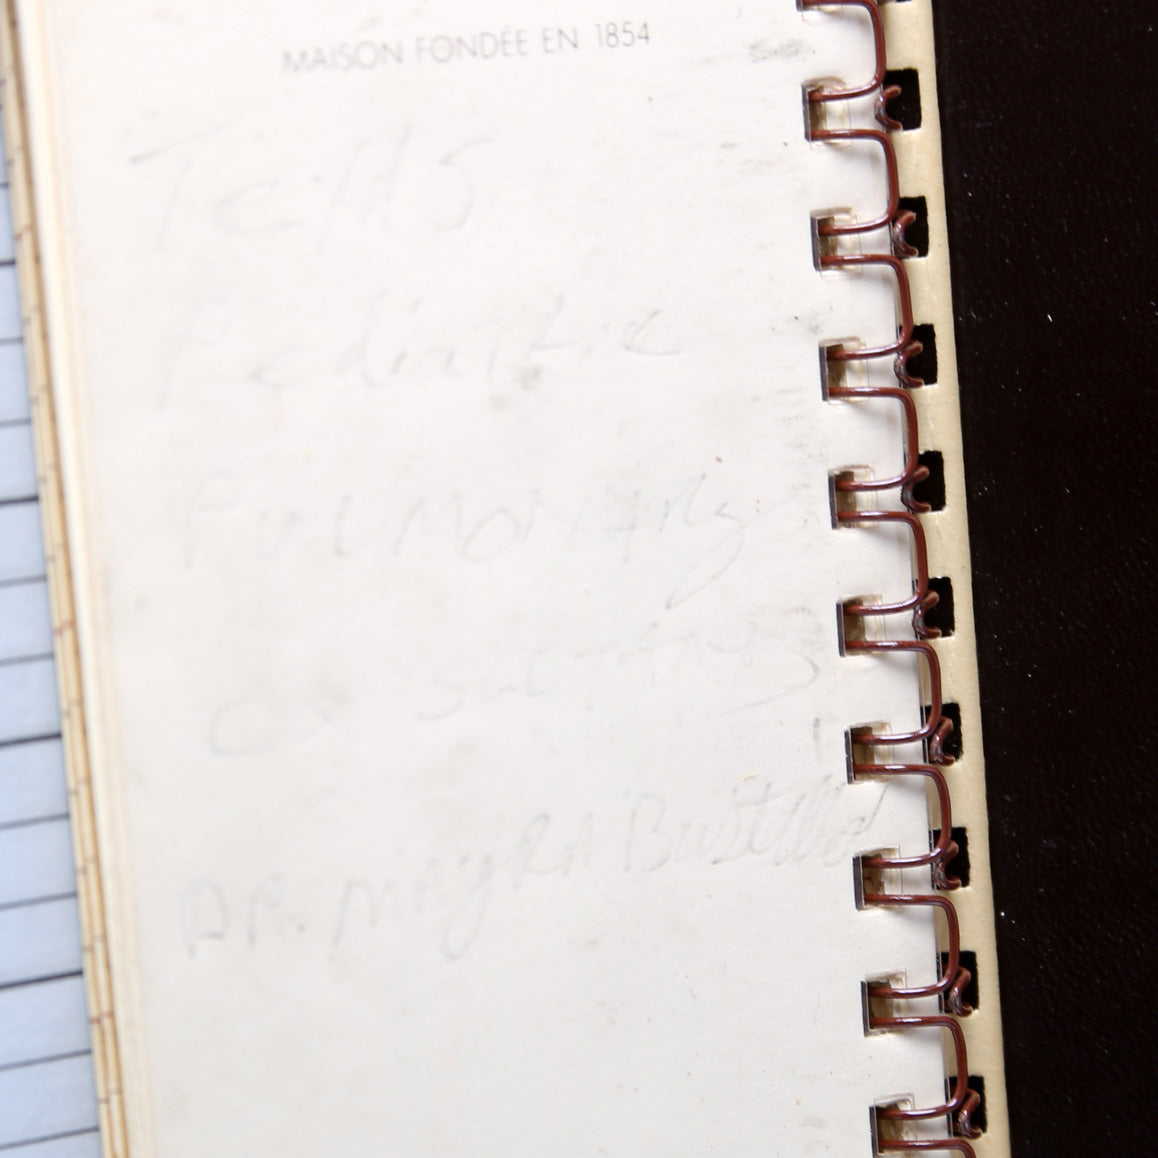 MAISON FONDÉE EN 1854
Texas
Pediatric
Pulmonary
Consultants
DR. MAYRA Bustillo